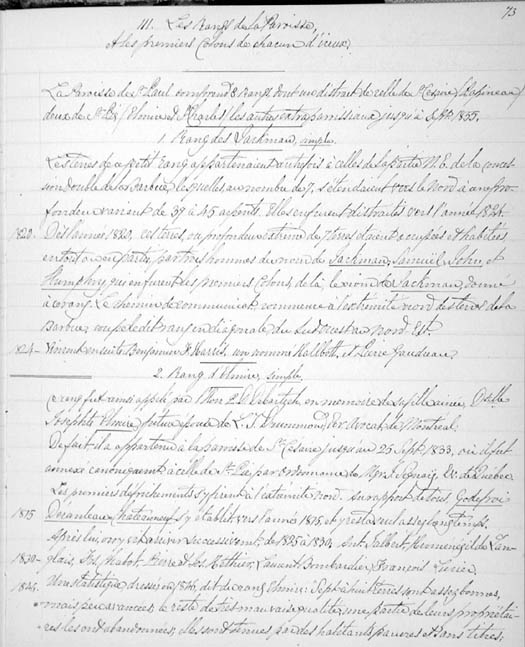 73
III. Les Rangs de la Paroisse
et les premiers Colons de chacun d'iceux
La Paroisse de St Paul comprend 8 Rangs dont une distrait de celle de St Césaire (Papineau)
deux de St Pie (Elmire & St Charles) les autres extraparoissiaux jusqu'à Sept 1855.
1. Rang des Jackman, simple.
Les terres de ce petit rang appartenaient autrefois à celles de la partie N.E. de la conces-
sion double de la Barbue, lesquelles au nombre de 7, s'étendaient vers le Nord à une pro-
fondeur variant de 37 à 45 arpents. Elles en furent distraites vers l'année 1824.
1820- Dès l'année 1820, ces terres, ou profondeur extreme de 7 terres étaient occupées et habitées
en tout ou en partie, par trois hommes du nom de Jackman, Samuel, John, et
Humphry qui en furent les premiers Colons, de là, le nom de Jackman, donné
à ce rang. Le chemin de communication commence à l'extrémité nord des terres de la
Barbue, coupe le dit rang en diagonale du Sud Ouest au Nord Est.
1824- Vinrent ensuite Benjamin Harris, un nommé Wallbott, et Pierre Gaudreau
2. Rang d'Elmire, simple.
Ce rang fut ainsi appelé par l'Hon. P. D. Debartzch, en memoire de sa fille ainée, Delle
Josephte Elmire, future épouse de L. T. Drummond, Ecr Avocat de Montreal.
De fait il a appartenu à la paroisse de St Césaire jusqu'au 25 Sept. 1833, où il fut
annexé canoniquement à celle de St Pie par Ordonnance de Mgr J. Signaÿ, Ev. de Québec.
Les premiers défrichements s'y firent à l'extrémité nord. Au rapport de tous Godefroi
1815 Daranleau Chateauneuf s'y établit vers l'année 1815, et y resta seul assez longtemps.
Après lui, on y vit arriver successivement de 1825 à 1830, Ant. Jalbert, Hermenegilde Lan-
1830- glois, Jos. Chabot, Pierre et Jos. Mathieu, Laurent Bombardier, François Lussier
1845. Une statistique dressée en 1845, dit du rang Elmire: Sept à huit terres sont assez bonnes,
mais peu avancées, le reste de très mauvaise qualité, une partie de leurs propriétai-
res les ont abandonnées, elles sont tenues par des habitants pauvres et sans titres,